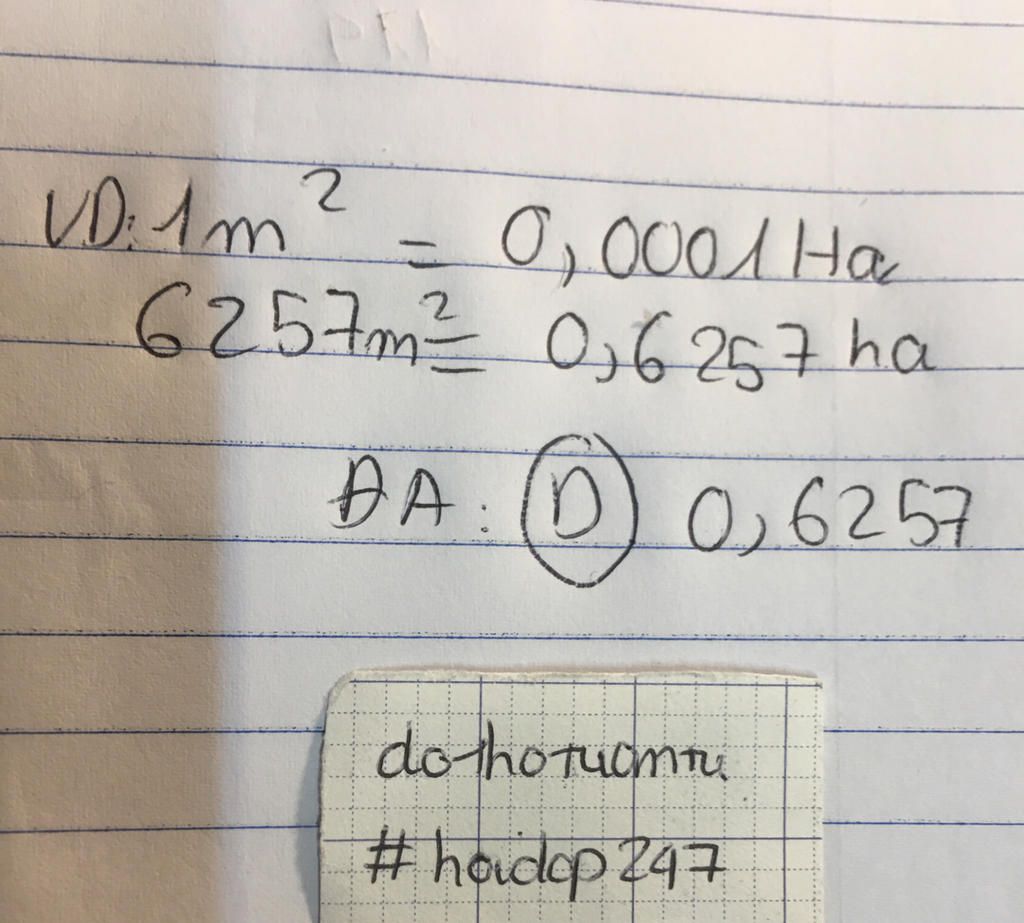 VD: 1m² = 0,0001 Ha
6257m² = 0,6257 ha
ĐA: D 0,6257
#hoidap247